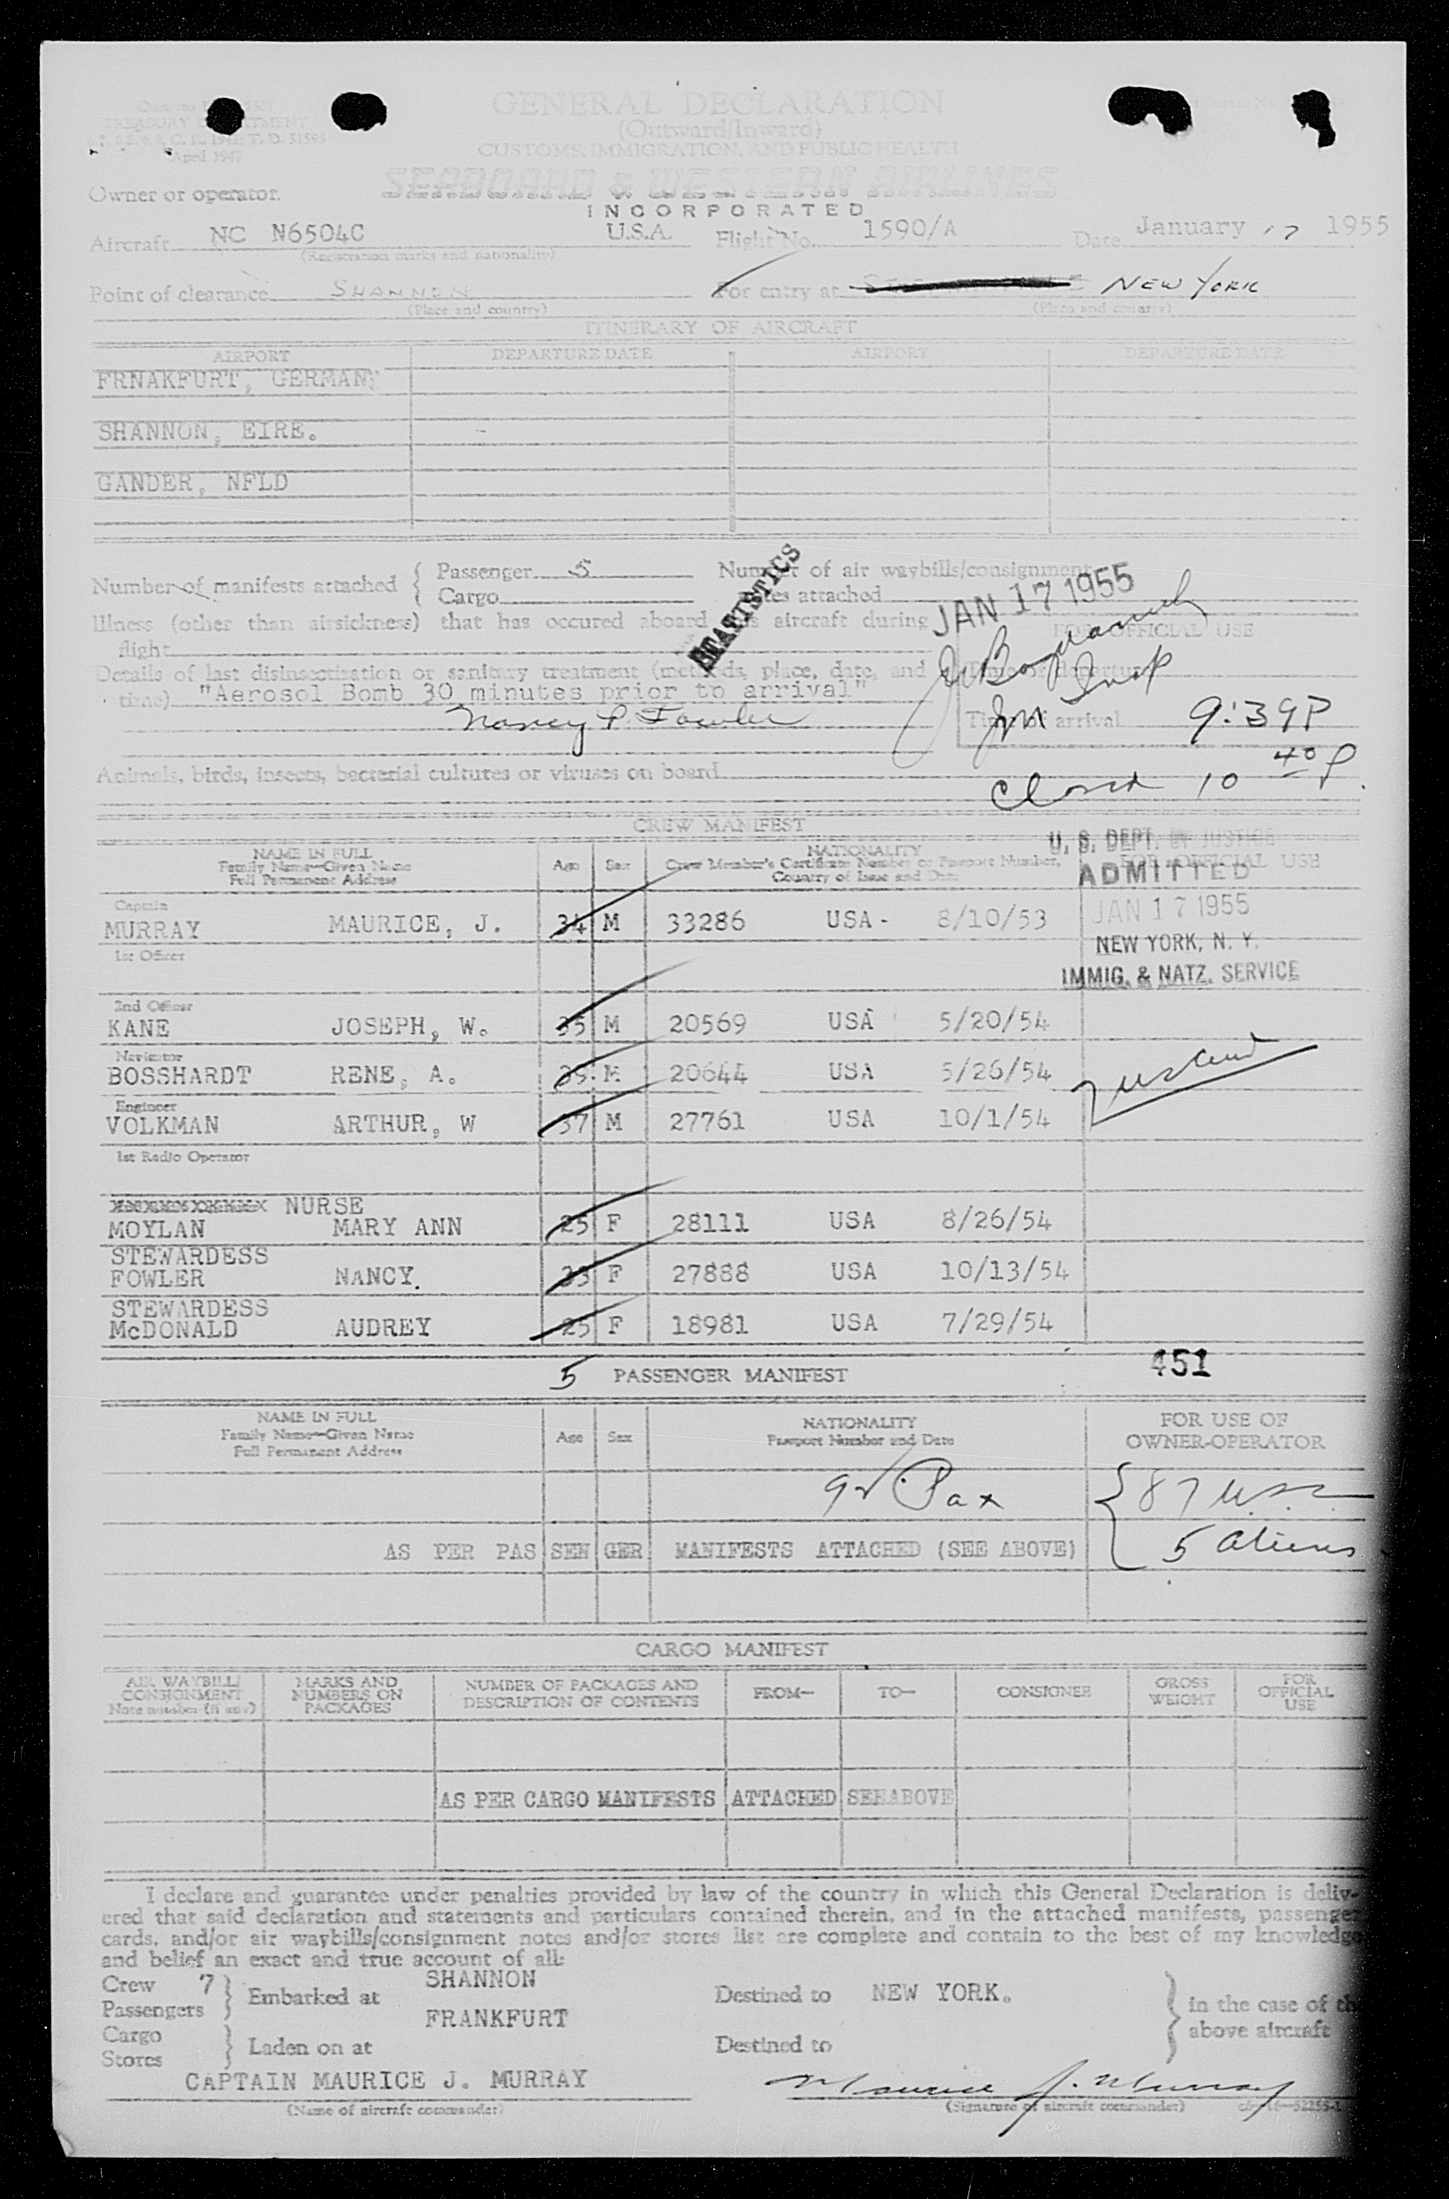 GENERAL DECLARATION
(Outward/Inward)
CUSTOMS, IMMIGRATION, AND PUBLIC HEALTH
TREASURY DEPARTMENT
April 1947
Owner or operator SEABOARD & WESTERN AIRLINES
INCORPORATED
Aircraft NC N6504C U.S.A. Flight No. 1590/A Date January 17 1955
(Registration marks and nationality)
Point of clearance SHANNON For entry at NEW YORK
(Place and country) (Place and country)
ITINERARY OF AIRCRAFT
AIRPORT DEPARTURE DATE AIRPORT DEPARTURE DATE
FRNAKFURT, GERMANY
SHANNON, EIRE.
GANDER, NFLD
Number of manifests attached { Passenger 5 Number of air waybills/consignment
Cargo notes attached
STATISTICS
JAN 17 1955
Illness (other than airsickness) that has occured aboard this aircraft during
flight
FOR OFFICIAL USE
Details of last disinsectisation or sanitary treatment (methods, place, date, and
time) "Aerosol Bomb 30 minutes prior to arrival"
Nancy P. Fowler
Time of departure
Insp
Time of arrival 9:39P
Animals, birds, insects, bacterial cultures or viruses on board
Closed 10 40 P.
CREW MANIFEST
U. S. DEPT. OF JUSTICE
NAME IN FULL
Family Name—Given Name
Full Permanent Address
Age Sex
NATIONALITY
Crew Member's Certificate Number or Passport Number,
Country of Issue and Date
FOR OFFICIAL USE
ADMITTED
JAN 17 1955
NEW YORK, N. Y.
IMMIG. & NATZ. SERVICE
Captain
MURRAY MAURICE, J. 34 M 33286 USA - 8/10/53
1st Officer
2nd Officer
KANE JOSEPH, W. 35 M 20569 USA 5/20/54
Navigator
BOSSHARDT RENE, A. 35 M 20644 USA 5/26/54
Engineer
VOLKMAN ARTHUR, W 37 M 27761 USA 10/1/54
1st Radio Operator
NURSE
MOYLAN MARY ANN 25 F 28111 USA 8/26/54
STEWARDESS
FOWLER NANCY. 23 F 27888 USA 10/13/54
STEWARDESS
McDONALD AUDREY 25 F 18981 USA 7/29/54
5 PASSENGER MANIFEST 451
NAME IN FULL
Family Name—Given Name
Full Permanent Address
Age Sex
NATIONALITY
Passport Number and Date
FOR USE OF
OWNER-OPERATOR
92 Pax { 87 USC
5 aliens
AS PER PASSENGER MANIFESTS ATTACHED (SEE ABOVE)
CARGO MANIFEST
AIR WAYBILL/
CONSIGNMENT
Note number (if any)
MARKS AND
NUMBERS ON
PACKAGES
NUMBER OF PACKAGES AND
DESCRIPTION OF CONTENTS
FROM—
TO—
CONSIGNEE
GROSS
WEIGHT
FOR
OFFICIAL
USE
AS PER CARGO MANIFESTS ATTACHED SEE ABOVE
I declare and guarantee under penalties provided by law of the country in which this General Declaration is deliv-
ered that said declaration and statements and particulars contained therein, and in the attached manifests, passenger
cards, and/or air waybills/consignment notes and/or stores list are complete and contain to the best of my knowledge
and belief an exact and true account of all:
Crew 7 } Embarked at SHANNON Destined to NEW YORK.
Passengers FRANKFURT
Cargo } Laden on at Destined to
Stores
} in the case of the
above aircraft
CAPTAIN MAURICE J. MURRAY Maurice J. Murray
(Name of aircraft commander) (Signature of aircraft commander)